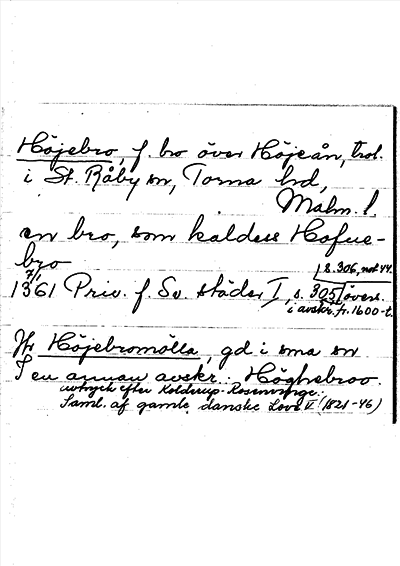 Höjebro, f. bro över Höjeån, trol.
i St. Råby sn, Torna hd,
Malm. l.
en bro, som kaldess Hofue-
bro
s. 306, not 44.
7/1 1361 Priv. f. Sv. städer I, s. 305 övers.
i avskr. fr. 1600-t.
Jfr Höjebromölla, gd i sma sn
I en annan avskr.: Höghebroo.
avtryck efter Kolderup-Rosenvinge:
Saml. af gamle danske Love V (1821-46)